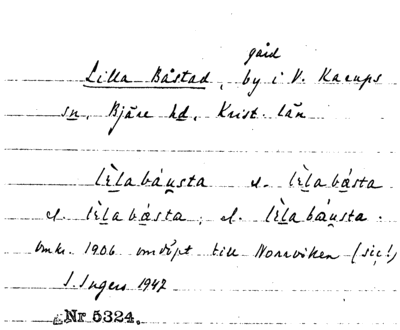 gård
Lilla Båstad, by i V. Karups
sn, Bjäre hd, Krist. län
lèlabáusta el. lèlabásta
el. lèlabásta, el. lèlabáusta.
omkr. 1906 omdöpt till Norrviken (sic!)
I. Ingers 1942
Nr 5324.